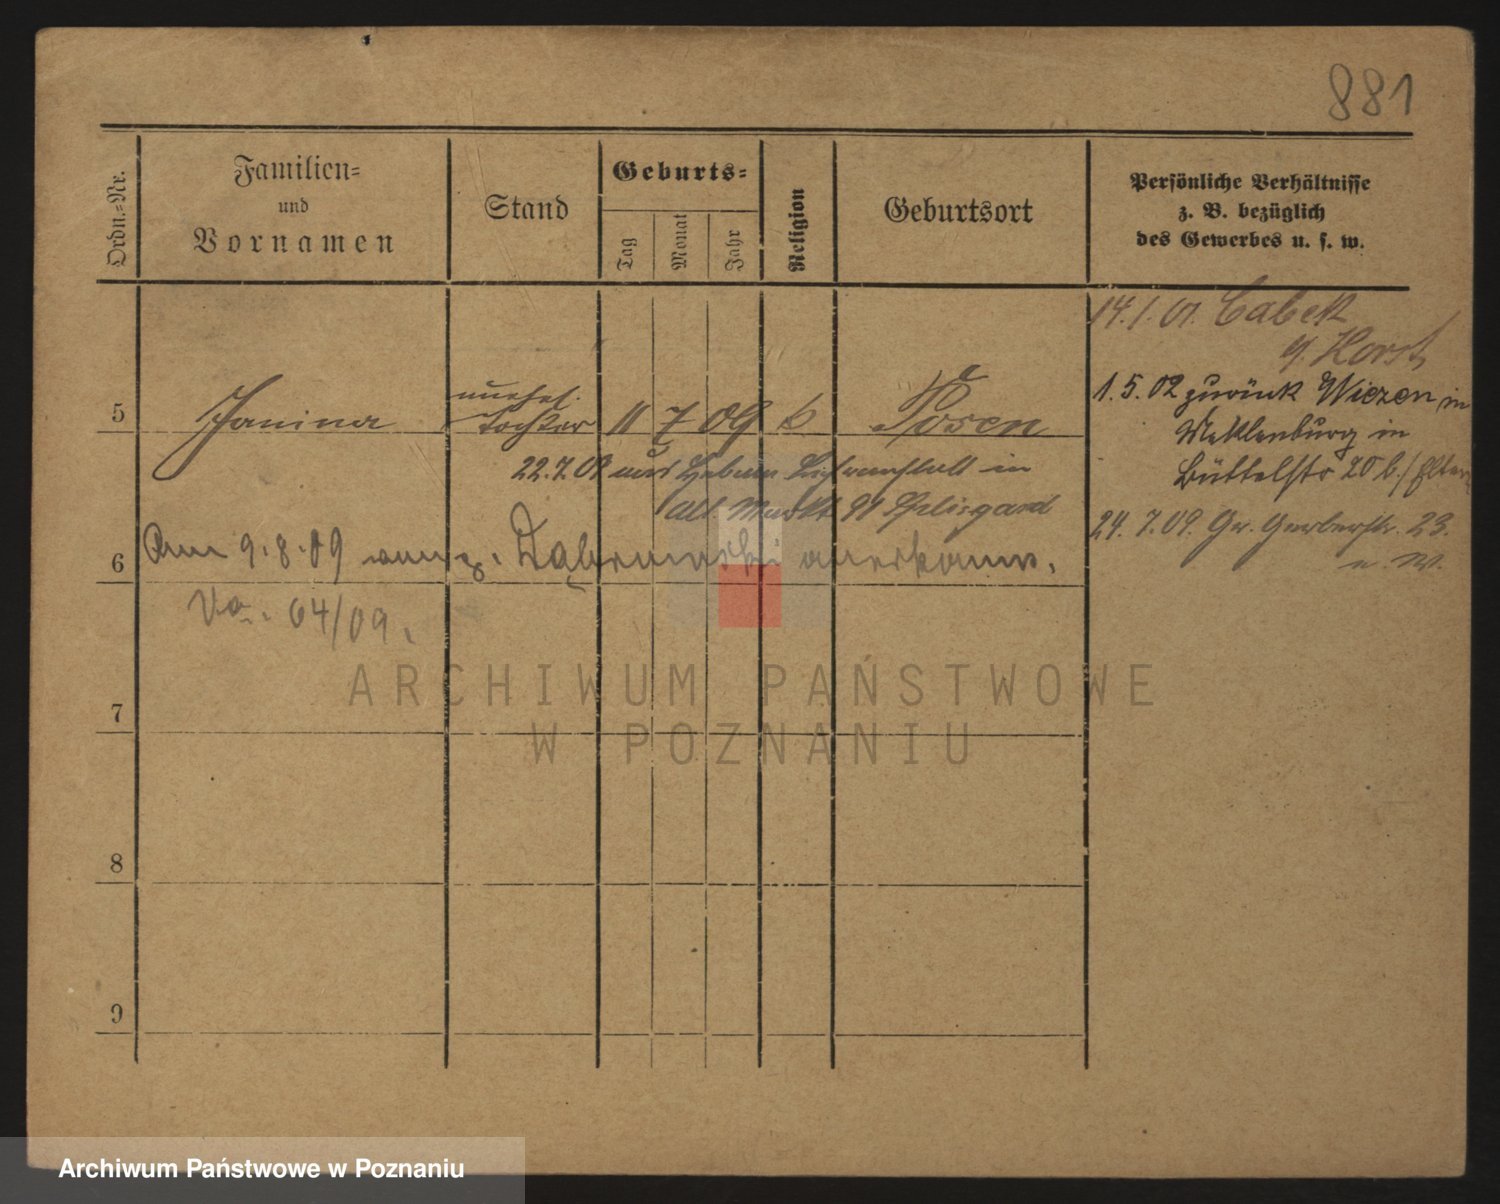 881
Ordn.-Nr.
Familien-
und
Vornamen
Stand
Geburts-
Tag
Monat
Jahr
Religion
Geburtsort
Persönliche Verhältnisse
z. B. bezüglich
des Gewerbes u. s. w.
14.1.01.
Horst
5
Janina
unehel.
Tochter
11
7
09
k
Posen
1.5.02 zurück in
Meklenburg in
20 b./Eltern
22.7.09 aus Hebam. Lehranstalt in
Alt. Markt 91
24.7.09. Gr. Gerberstr. 23.
6
Am 9.8.09 anerkannt.
64/09.
ARCHIWUM PAŃSTWOWE
W POZNANIU
7
8
9
Archiwum Państwowe w Poznaniu